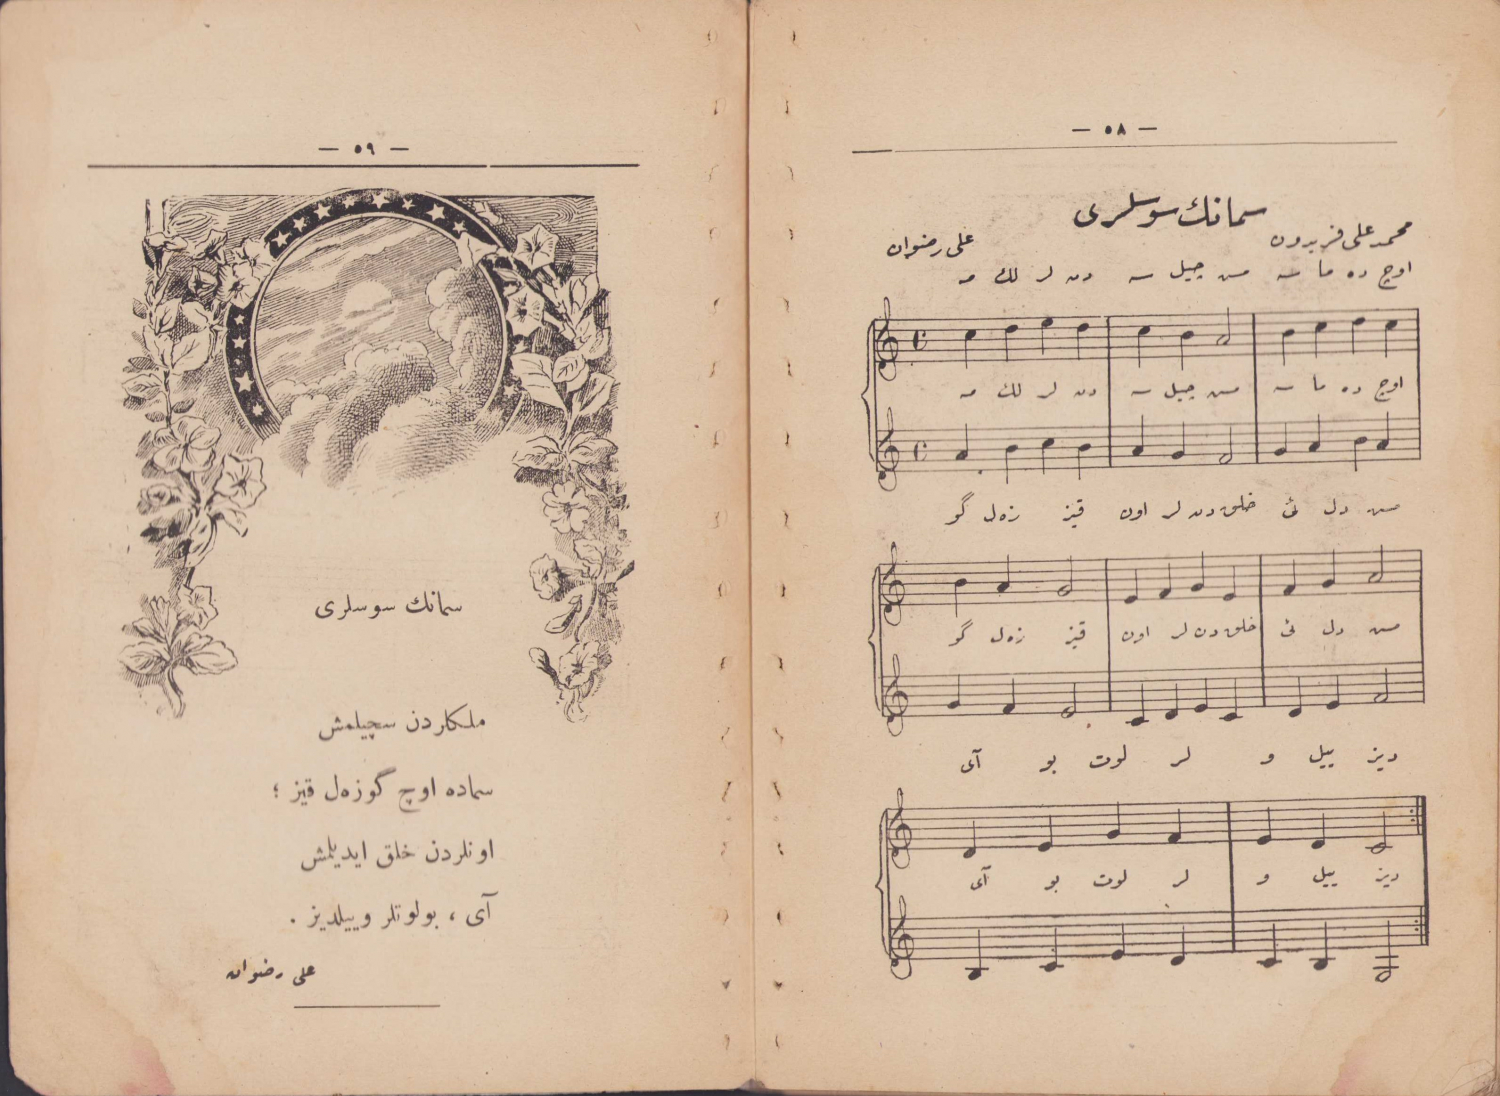 — ٥٨ —
سمانك سوسلری
محمد علی فریدون
علی رضوان
مه لك لر دن سه چیل مش سه ما ده اوچ
مه لك لر دن سه چیل مش سه ما ده اوچ
گو زه‌ل قیز اون لر دن خلق ئی دل مش
گو زه‌ل قیز اون لر دن خلق ئی دل مش
آی بو لوت لر و ییل دیز
آی بو لوت لر و ییل دیز
— ٥٩ —
سمانك سوسلری
ملكلردن سچیلمش
سماده اوچ گوزه‌ل قیز ؛
اونلردن خلق ایدیلمش
آی ، بولوتلر و ییلدیز .
علی رضوان